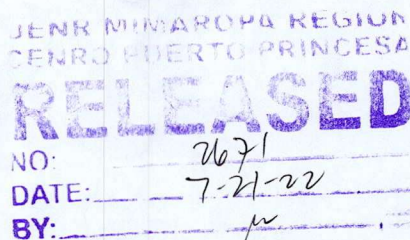 DENR MIMAROPA REGION
CENRO PUERTO PRINCESA
RELEASED
NO: 2671
DATE: 7-21-22
BY: